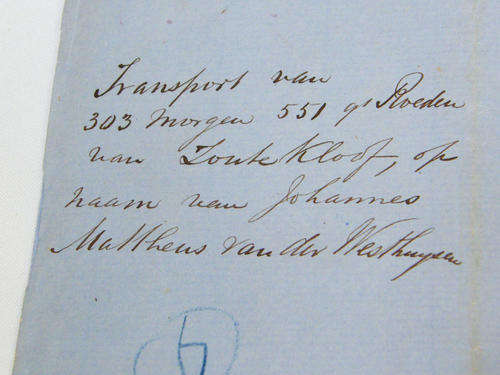 Transport van
303 Morgen 551 qt Roeden
van Zoute Kloof, op
naam van Johannes
Mattheus van der Westhuysen